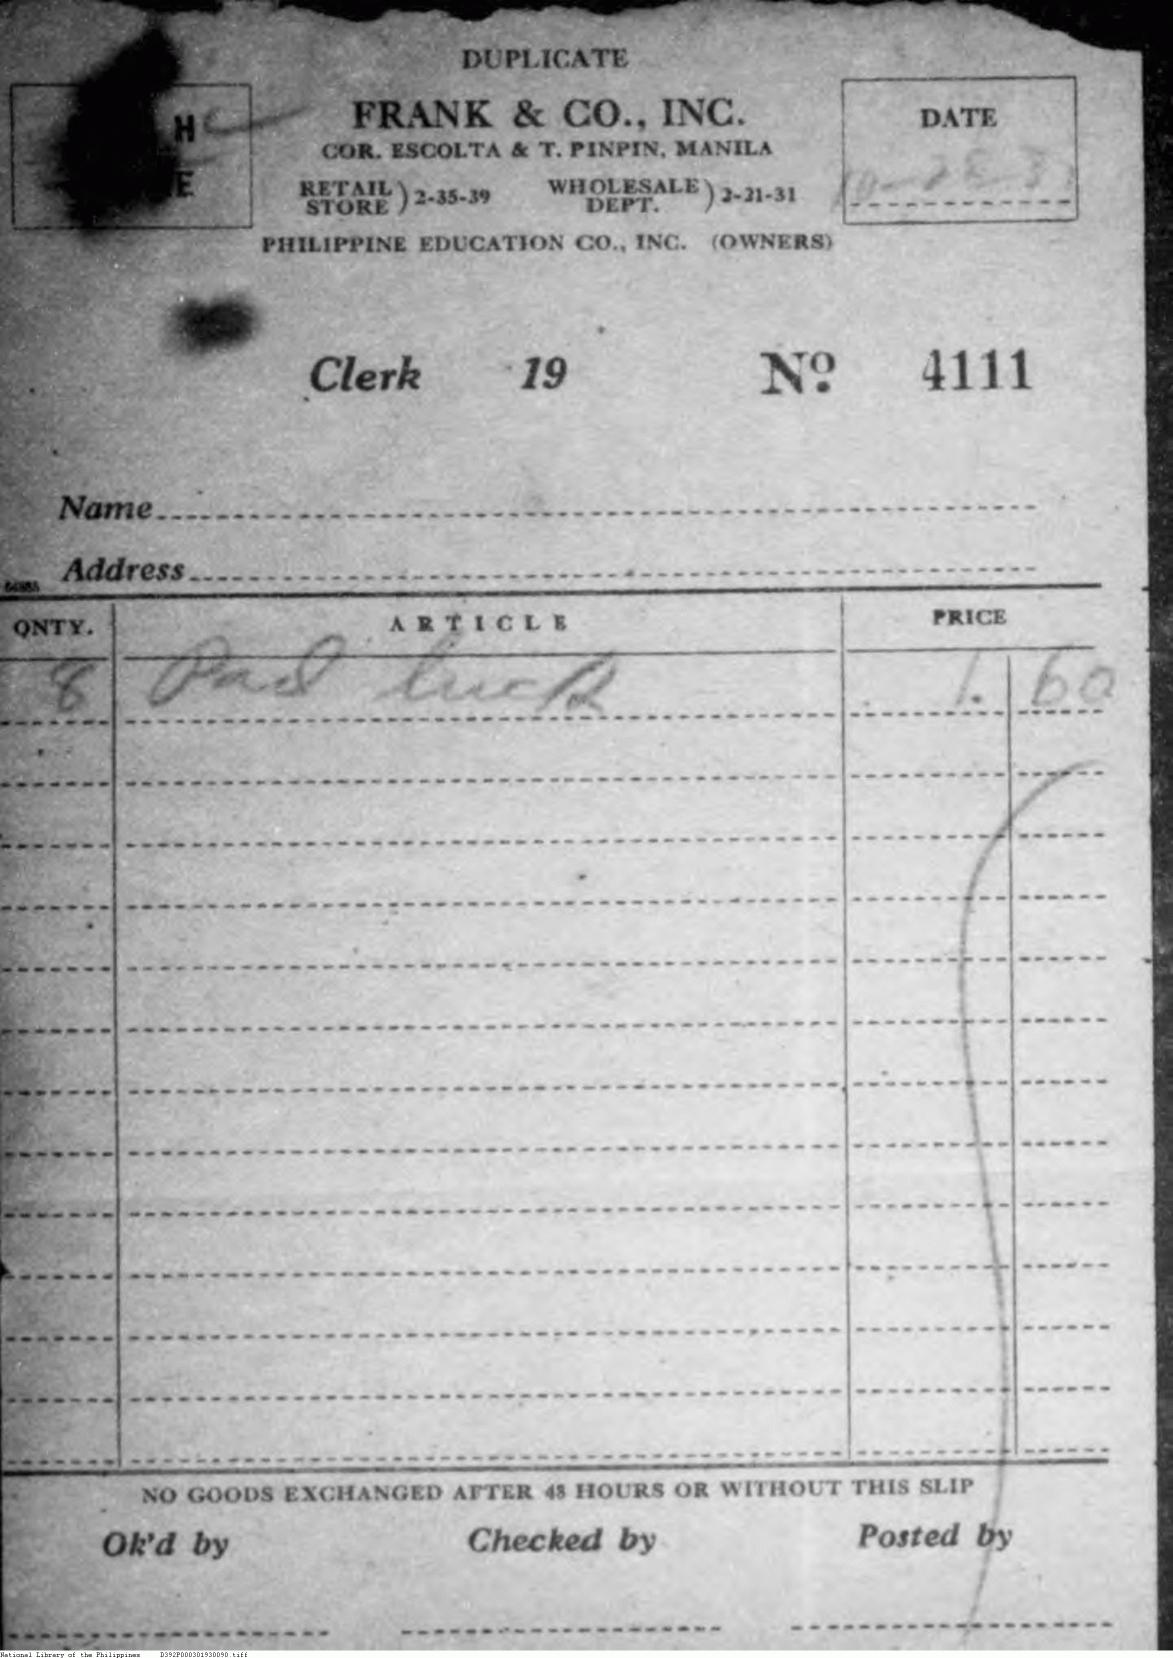 DUPLICATE
FRANK & CO., INC.
COR. ESCOLTA & T. PINPIN, MANILA
RETAIL STORE ) 2-35-39 WHOLESALE DEPT. ) 2-21-31
PHILIPPINE EDUCATION CO., INC. (OWNERS)
H
E
DATE
Clerk 19 No. 4111
Name
Address
QNTY. ARTICLE PRICE
8 Pad 1. 60
NO GOODS EXCHANGED AFTER 48 HOURS OR WITHOUT THIS SLIP
Ok'd by Checked by Posted by
National Library of the Philippines D392P000301930090.tiff